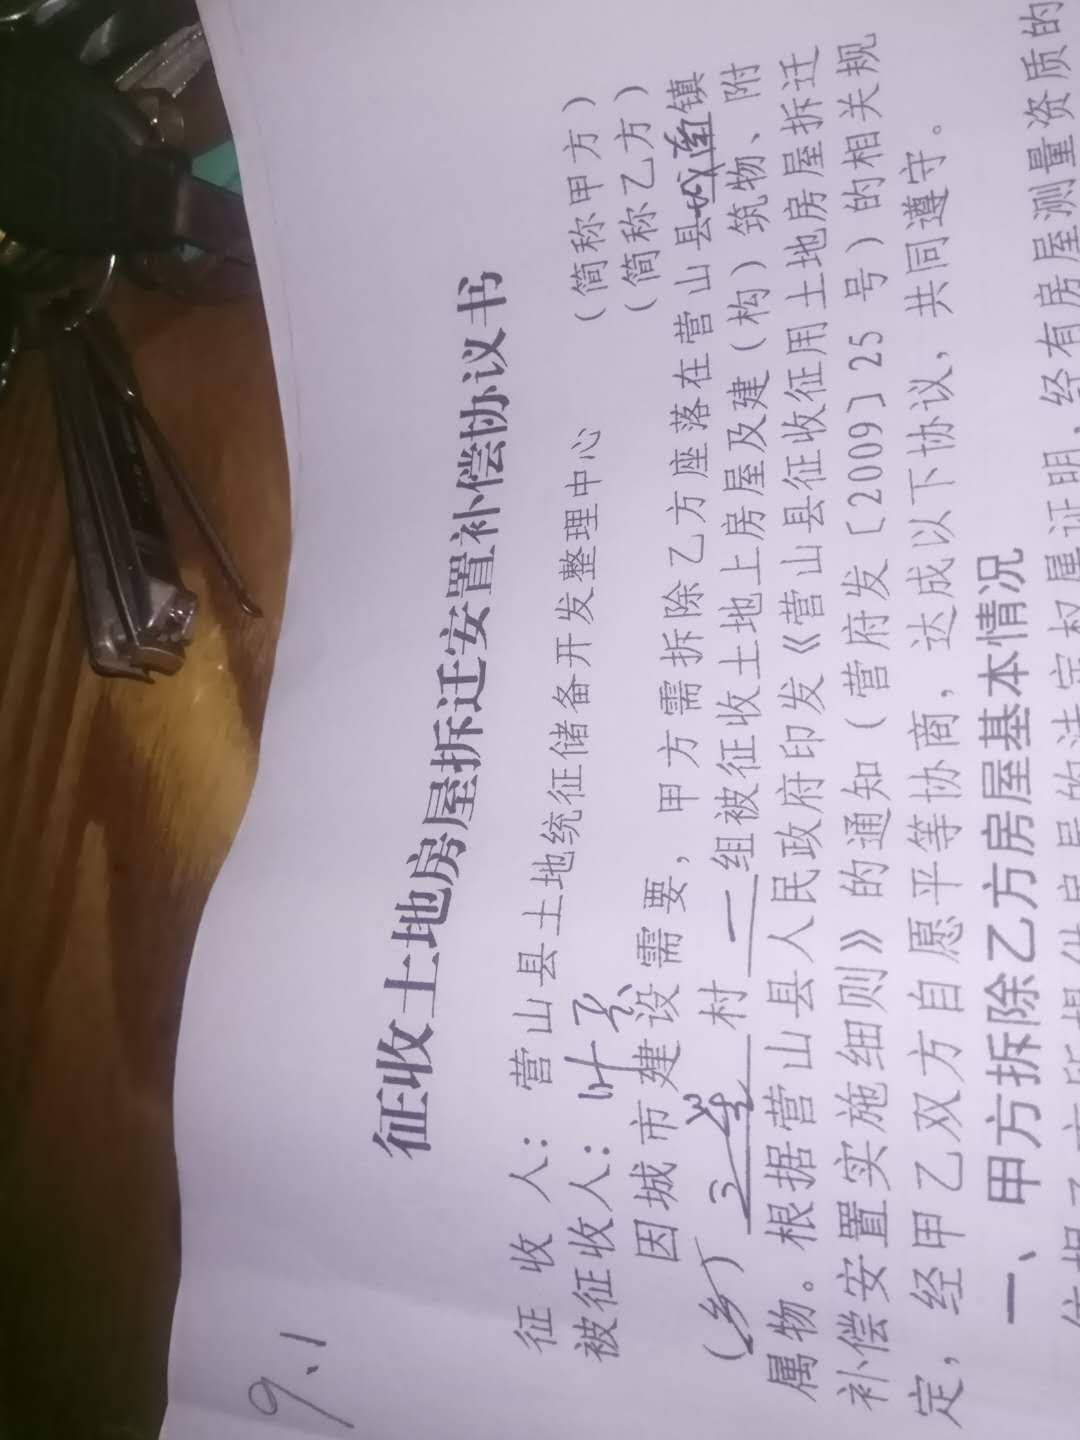 9.1
征收土地房屋拆迁安置补偿协议书
征 收 人：营山县土地统征储备开发整理中心 （简称甲方）
被征收人：叶 （简称乙方）
因城市建设需要，甲方需拆除乙方座落在营山县城南镇
（乡）村一组被征收土地上房屋及建（构）筑物、附
属物。根据营山县人民政府印发《营山县征收征用土地房屋拆迁
补偿安置实施细则》的通知（营府发〔2009〕25 号）的相关规
定，经甲乙双方自愿平等协商，达成以下协议，共同遵守。
一、甲方拆除乙方房屋基本情况
依据乙方所提供房屋的法定权属证明，经有房屋测量资质的